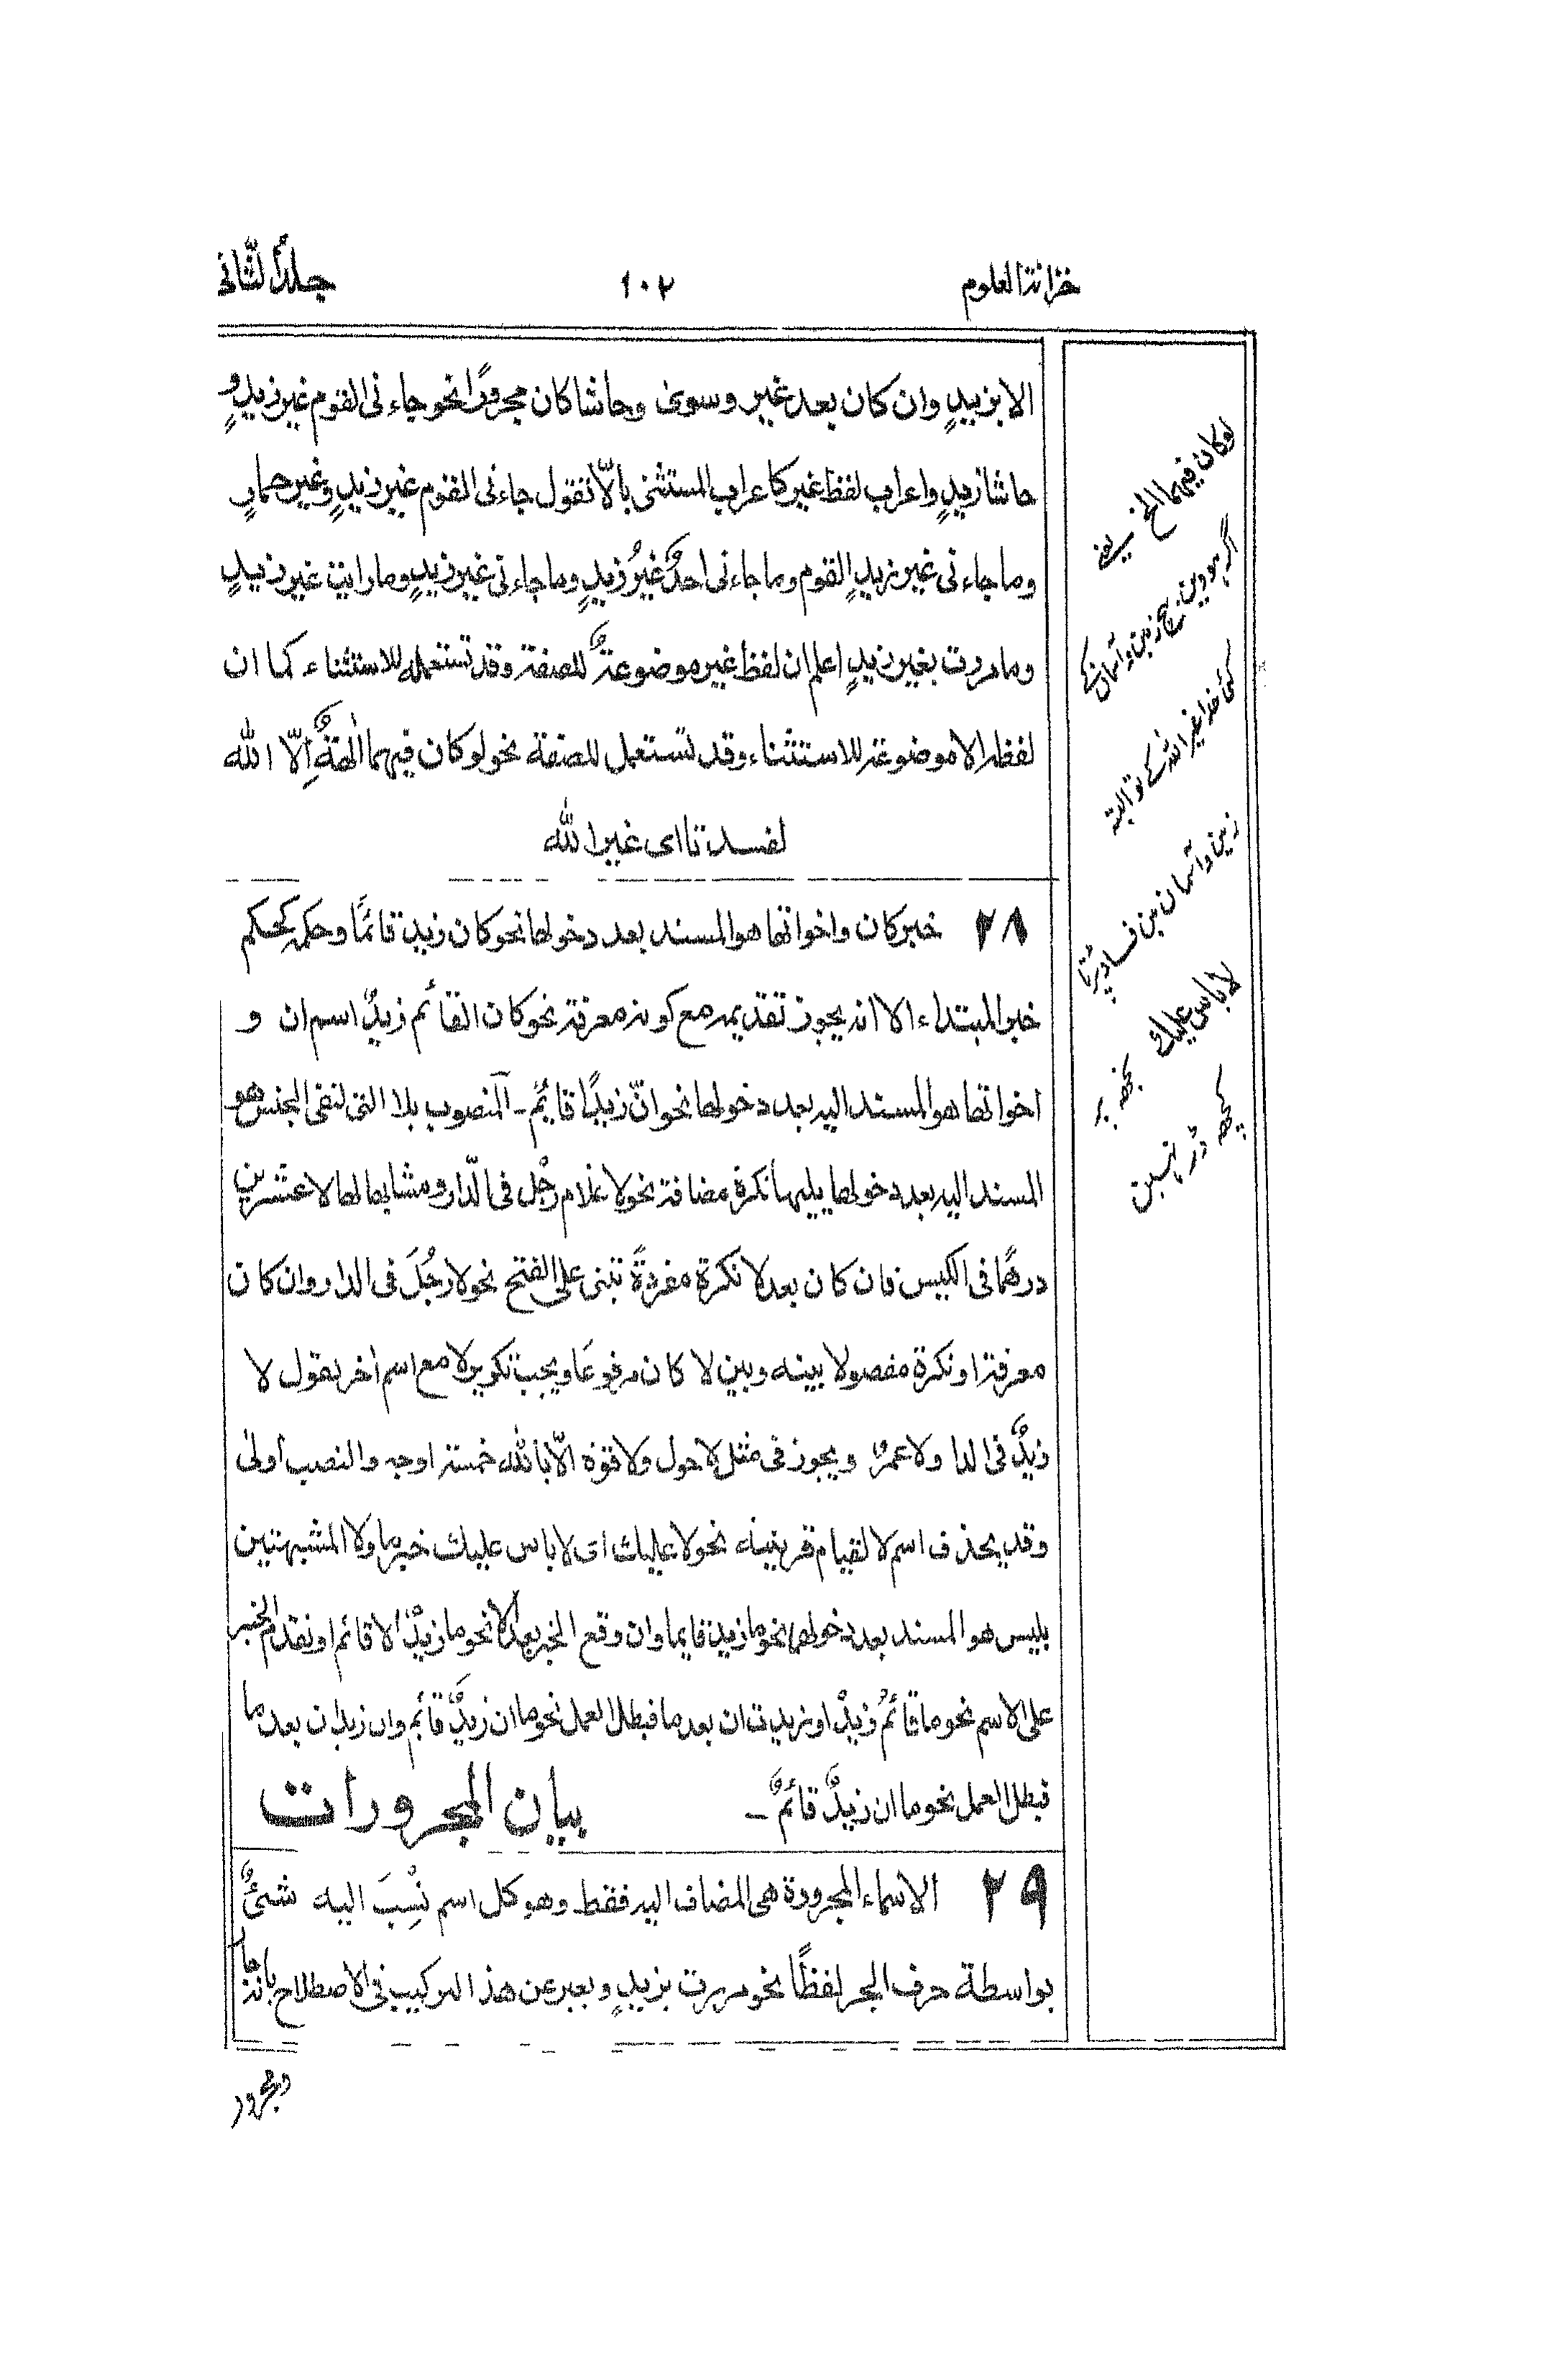 خزانة العلوم
١٠٢
جلد الثانی
الا بزيدٍ وان كان بعد غير وسوى وحاشا كان مجرورًا نحو جاءنى القوم غير زيدٍ و
حاشا زيدٍ واعراب لفظ غير كاعراب المستثنى بالّا تقول جاءنى القوم غير زيدٍ وغير حمارٍ
وما جاءنى غير زيدٍ القوم وما جاءنى احدٌ غيرُ زيدٍ وما جاءنى غير زيدٍ وما رايت غير زيدٍ
وما مررت بغير زيدٍ اعلم ان لفظ غير موضوعةٌ للصفة وقد تستعمله للاستثناء كما ان
لفظ الا موضوعة للاستثناء وقد تستعمل للصفة نحو لو كان فيهما اٰلهةٌ اِلّا الله
لفسدتا اى غير الله
٢٨ خبر كان واخواتها هو المسند بعد دخولها نحو كان زيد قائمًا وحكمه كحكم
خبر المبتداء الا انه يجوز تقديمه مع كونه معرفة نحو كان القائم زيدٌ اسم ان و
اخواتها هو المسند اليه بعد دخولها نحو انّ زيدًا قايمٌ - المنصوب بلا التى لنفى الجنس هو
المسند اليه بعد دخولها يليها نكرة مضافة نحو لا غلام رجُل فى الدّار ومشابها لها لا عشرين
درهمًا فى الكيس فان كان بعد لا نكرة مفردةً تبنى على الفتح نحو لا رجُلَ فى الدار وان كان
معرفة او نكرة مفصولا بينه وبين لا كان مرفوعًا ويجب تكرير لا مع اسم اٰخر تقول لا
زيدٌ فى الدا ولا عمرٌ ويجوز فى مثل لا حول ولا قوة الّا بالله خمسة اوجه والنصب اولى
وقد يحذف اسم لا لقيام قرينه نحو لا عليك اى لا باس عليك خبر ما ولا المشبهتين
بليس هو المسند بعد دخولهما نحو ما زيد قايما وان وقع الخبر بعد الا نحو ما زيدٌ الا قائم او تقدم الخبر
على الاسم نحو ما قائمٌ زيدٌ او زيدت ان بعد ما فبطل العمل نحو ما ان زيدٌ قائم وان زيد ان بعد ما
فبطل العمل نحو ما ان زيدٌ قائمٌ -
بيان المجرورات
٢٩ الاسماء المجرورة هى المضاف اليه فقط وهو كل اسم نُسِبَ اليه شئٌ
بواسطة حرف الجر لفظًا نحو مررت بزيدٍ ويعبر عن هذا التركيب فى الاصطلاح بانه جار
ومجرور
لوکان فیهما الخ یعنے
اگر ہووین بیچ زمین و آسمان کے
کئی خدا غیر اللہ کے تو البتہ
زمین و آسمان مین فساد پڑتا
لا باس علیك تجھہ پر
کچھہ ڈر نہین